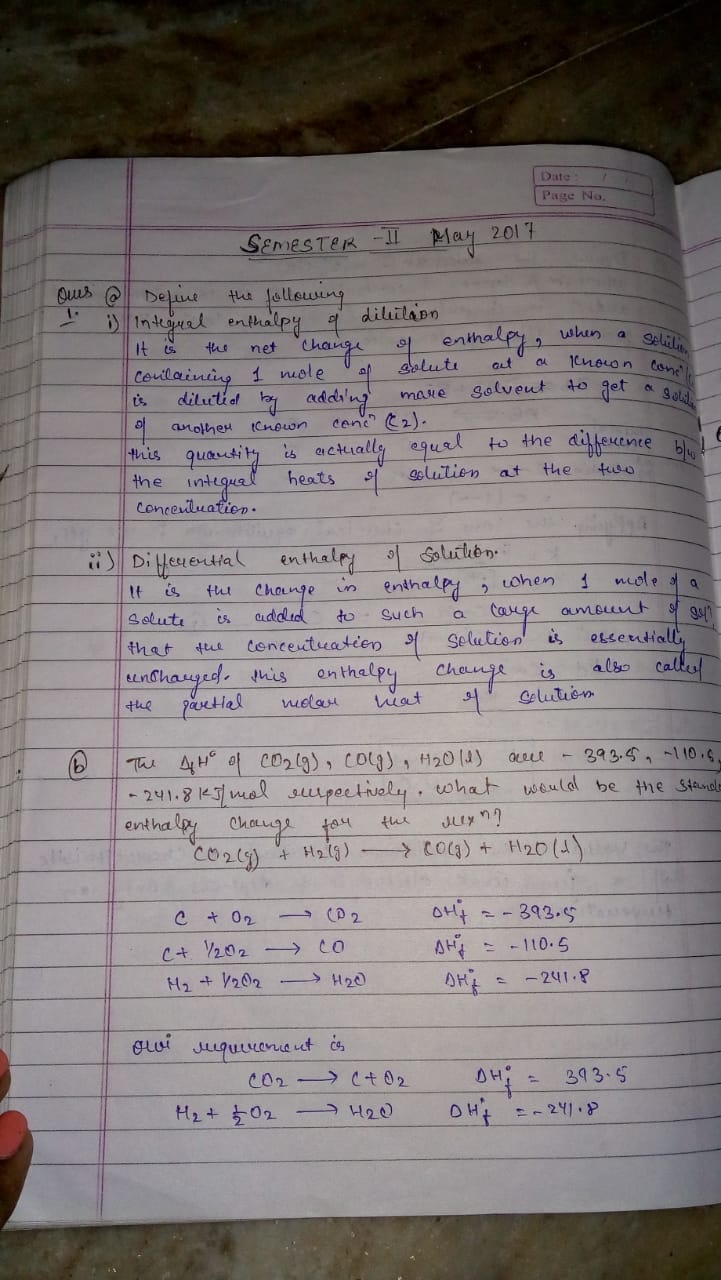 Date : / /
Page No.
SEMESTER - II May 2017
Ques @ Define the following
1. i) Integral enthalpy of dilution
It is the net change of enthalpy, when a
containing 1 mole of solute at a known concⁿ
is diluted by adding more solvent to get a
of another known concⁿ (C2).
this quantity is actually equal to the difference b/w
the integral heats of solution at the two
concentration.
ii) Differential enthalpy of solution.
It is the change in enthalpy, when 1 mole of a
solute is added to such a large amount of solⁿ
that the concentration of solution is essentially
unchanged. this enthalpy change is also called
the partial molar heat of solution
(b) The ΔfH° of CO2(g), CO(g), H2O(l) are - 393.5, -110.5,
- 241.8 KJ/mol respectively. what would be the
enthalpy change for the rexⁿ?
CO2(g) + H2(g) → CO(g) + H2O(l)
C + O2 → CO2 ΔH°f = - 393.5
C + 1/2O2 → CO ΔH°f = - 110.5
H2 + 1/2O2 → H2O ΔH°f = - 241.8
our requirement is
CO2 → C + O2 ΔH°f = 393.5
H2 + 1/2 O2 → H2O ΔH°f = - 241.8